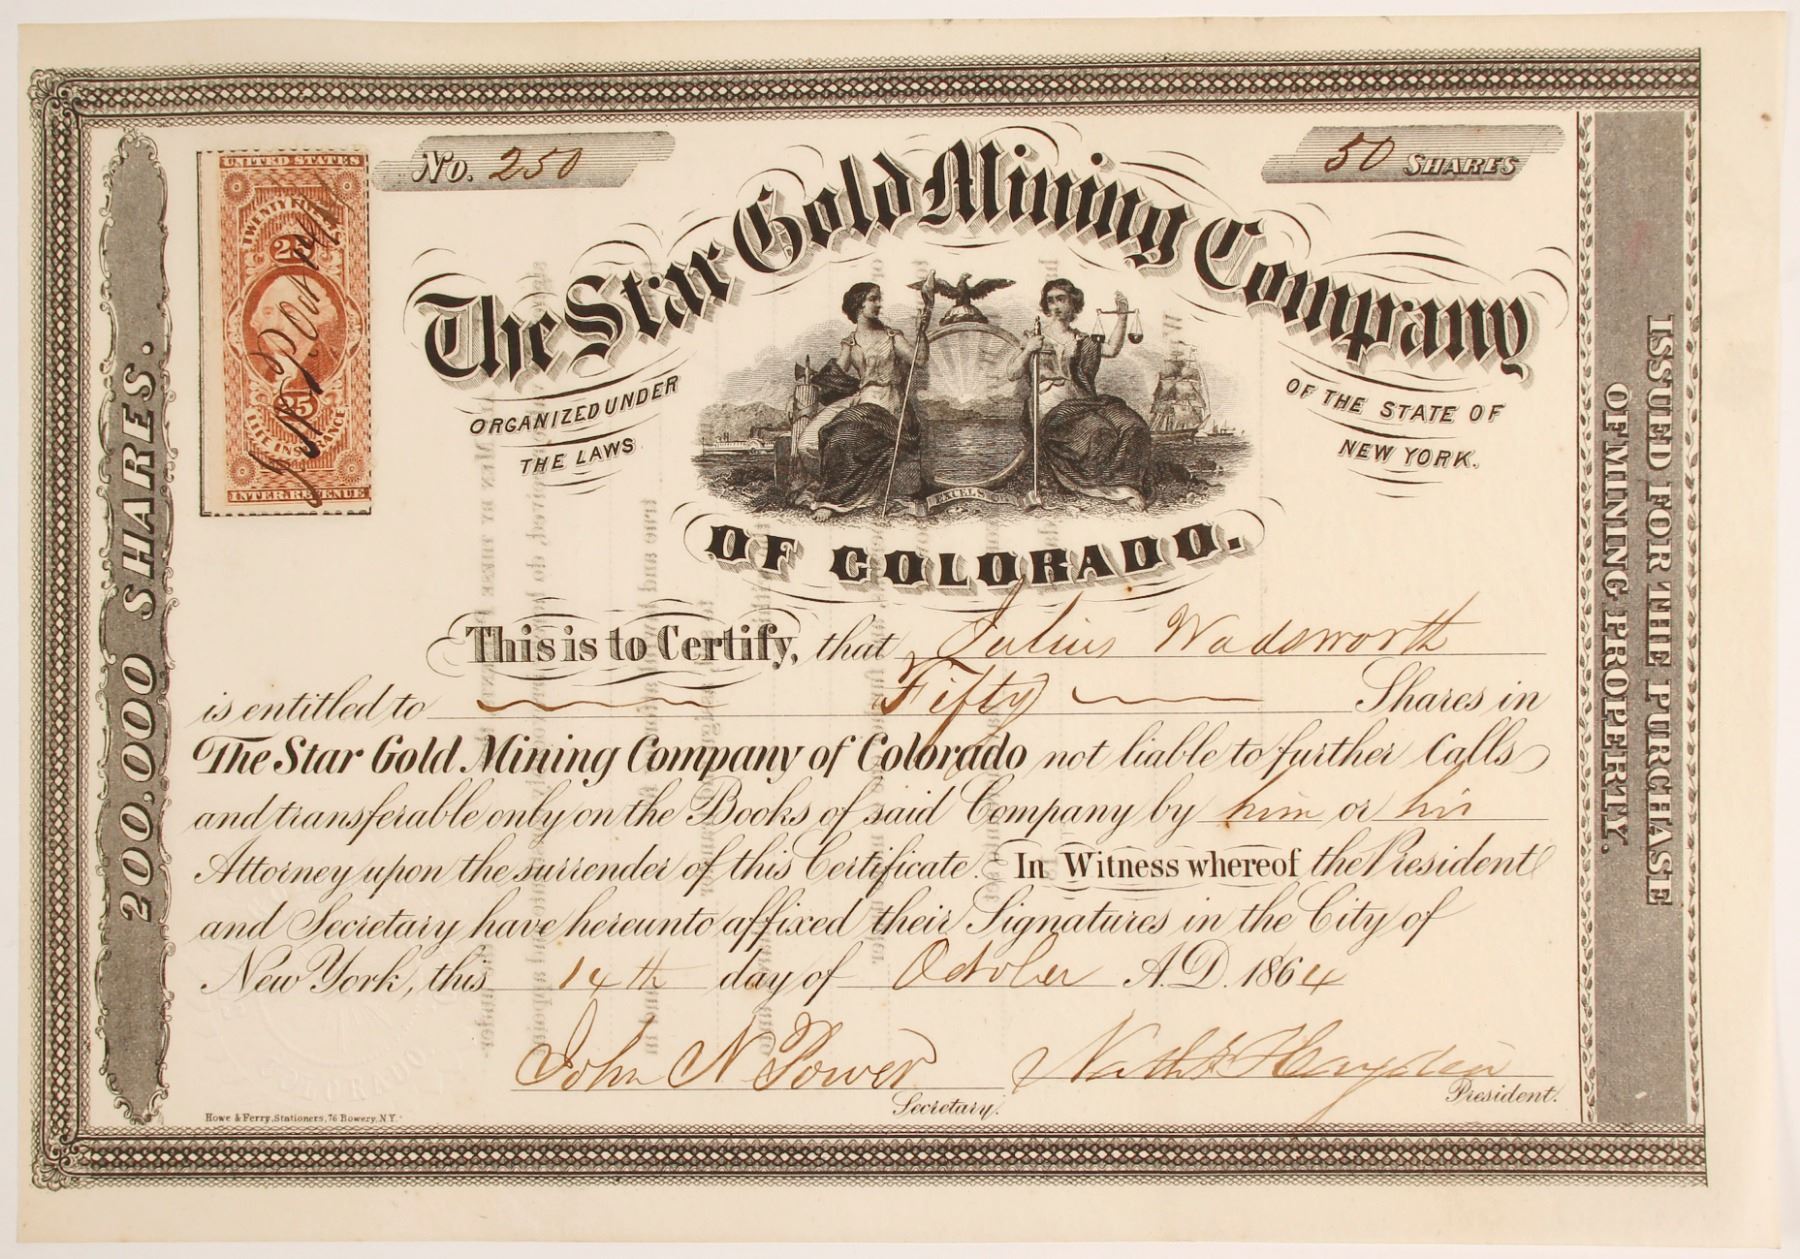 No. 250
50 SHARES
UNITED STATES
TWENTY FIVE
25
25
LIFE INSURANCE
INTER. REVENUE
The Star Gold Mining Company
ORGANIZED UNDER
THE LAWS
OF THE STATE OF
NEW YORK.
EXCELSIOR
OF COLORADO.
This is to Certify, that Julius Wadsworth
is entitled to Fifty Shares in
The Star Gold Mining Company of Colorado not liable to further Calls
and transferable only on the Books of said Company by him or his
Attorney upon the surrender of this Certificate. In Witness whereof the President
and Secretary have hereunto affixed their Signatures in the City of
New York, this 14th day of October A.D. 1864
John N Power
Secretary.
Hayden
President.
Howe & Ferry, Stationers, 76 Bowery, N.Y.
COLORADO.
200.000 SHARES.
ISSUED FOR THE PURCHASE
OF MINING PROPERTY.